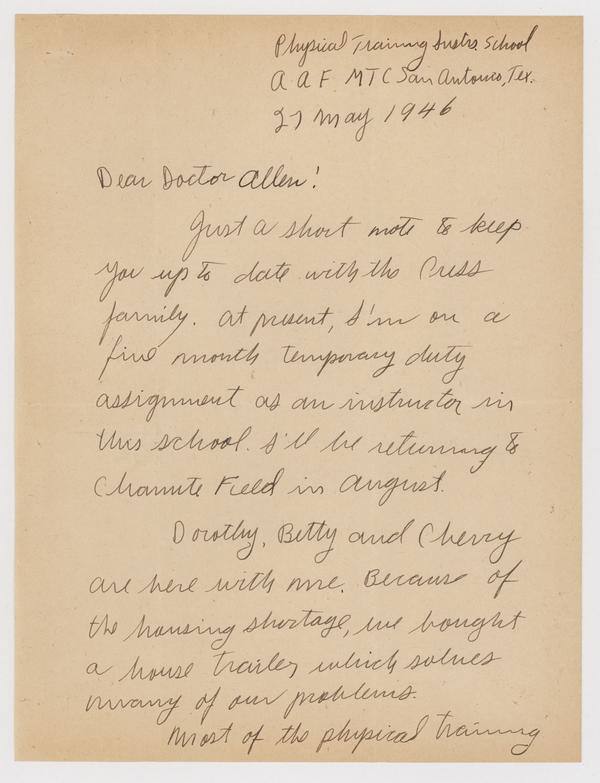 Physical Training Instrs School
A A F MTC San Antonio, Tex.
27 May 1946
Dear Doctor Allen!
Just a short note to keep
you up to date with the Cress
family. At present, I'm on a
five month temporary duty
assignment as an instructor in
this school. I'll be returning to
Chanute Field in August.
Dorothy, Betty and Cherry
are here with me. Because of
the housing shortage, we bought
a house trailer which solves
many of our problems.
Most of the physical training